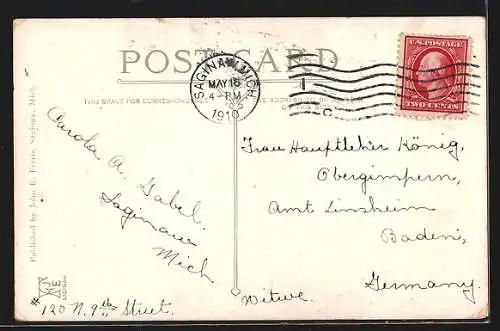 POST CARD
SAGINAW, MICH.
MAY 18
4-PM
1910
U.S. POSTAGE
TWO CENTS
THIS SPACE FOR CORRESPONDENCE
ADDRESS
Published by John E. Ferris, Saginaw, Mich.
Carola A. Gabel.
Saginaw
Mich
# 120 N. 9th Street.
Frau Hauptlehrer König,
Obergimpern,
Amt Sinsheim
Baden,
Germany.
Witwe.